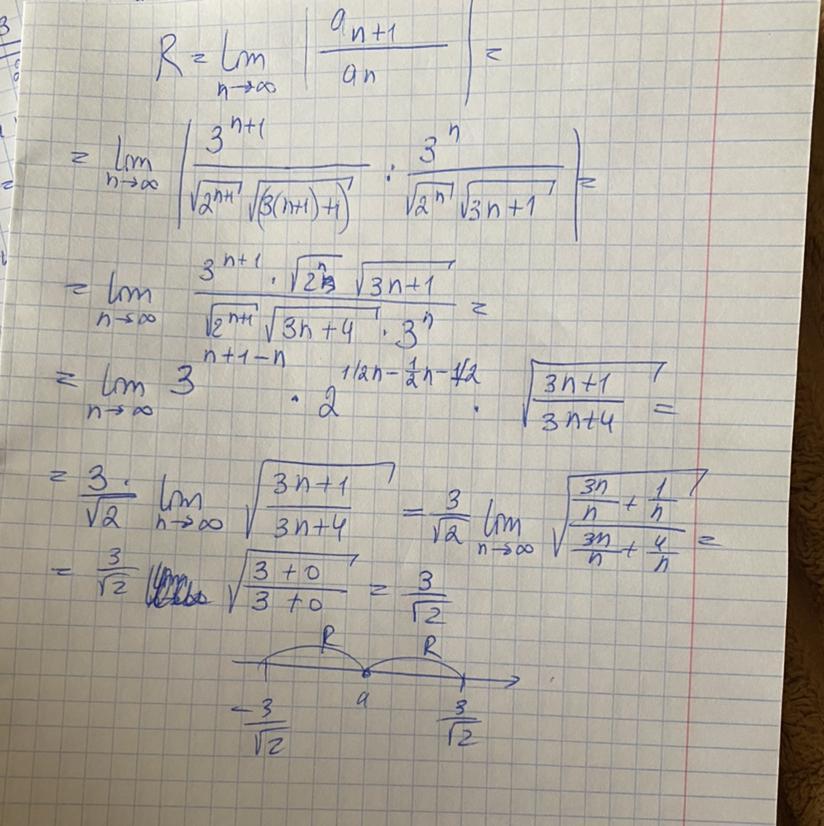 R = lim n→∞ | a n+1 / an | =
= lim n→∞ | 3^{n+1} / √2^{n+1} √(3(n+1)+1) : 3^n / √2^n √3n+1 | =
= lim n→∞ 3^{n+1} · √2^n √3n+1 / √2^{n+1} √3n+4 · 3^n =
= lim n→∞ 3^{n+1-n} · 2^{1/2n - 1/2 n - 1/2} · √(3n+1 / 3n+4) =
= 3/√2 · lim n→∞ √(3n+1 / 3n+4) = 3/√2 lim n→∞ √((3n/n + 1/n) / (3n/n + 4/n)) =
= 3/√2 √(3+0 / 3+0) = 3/√2
R R
-3/√2 a 3/√2